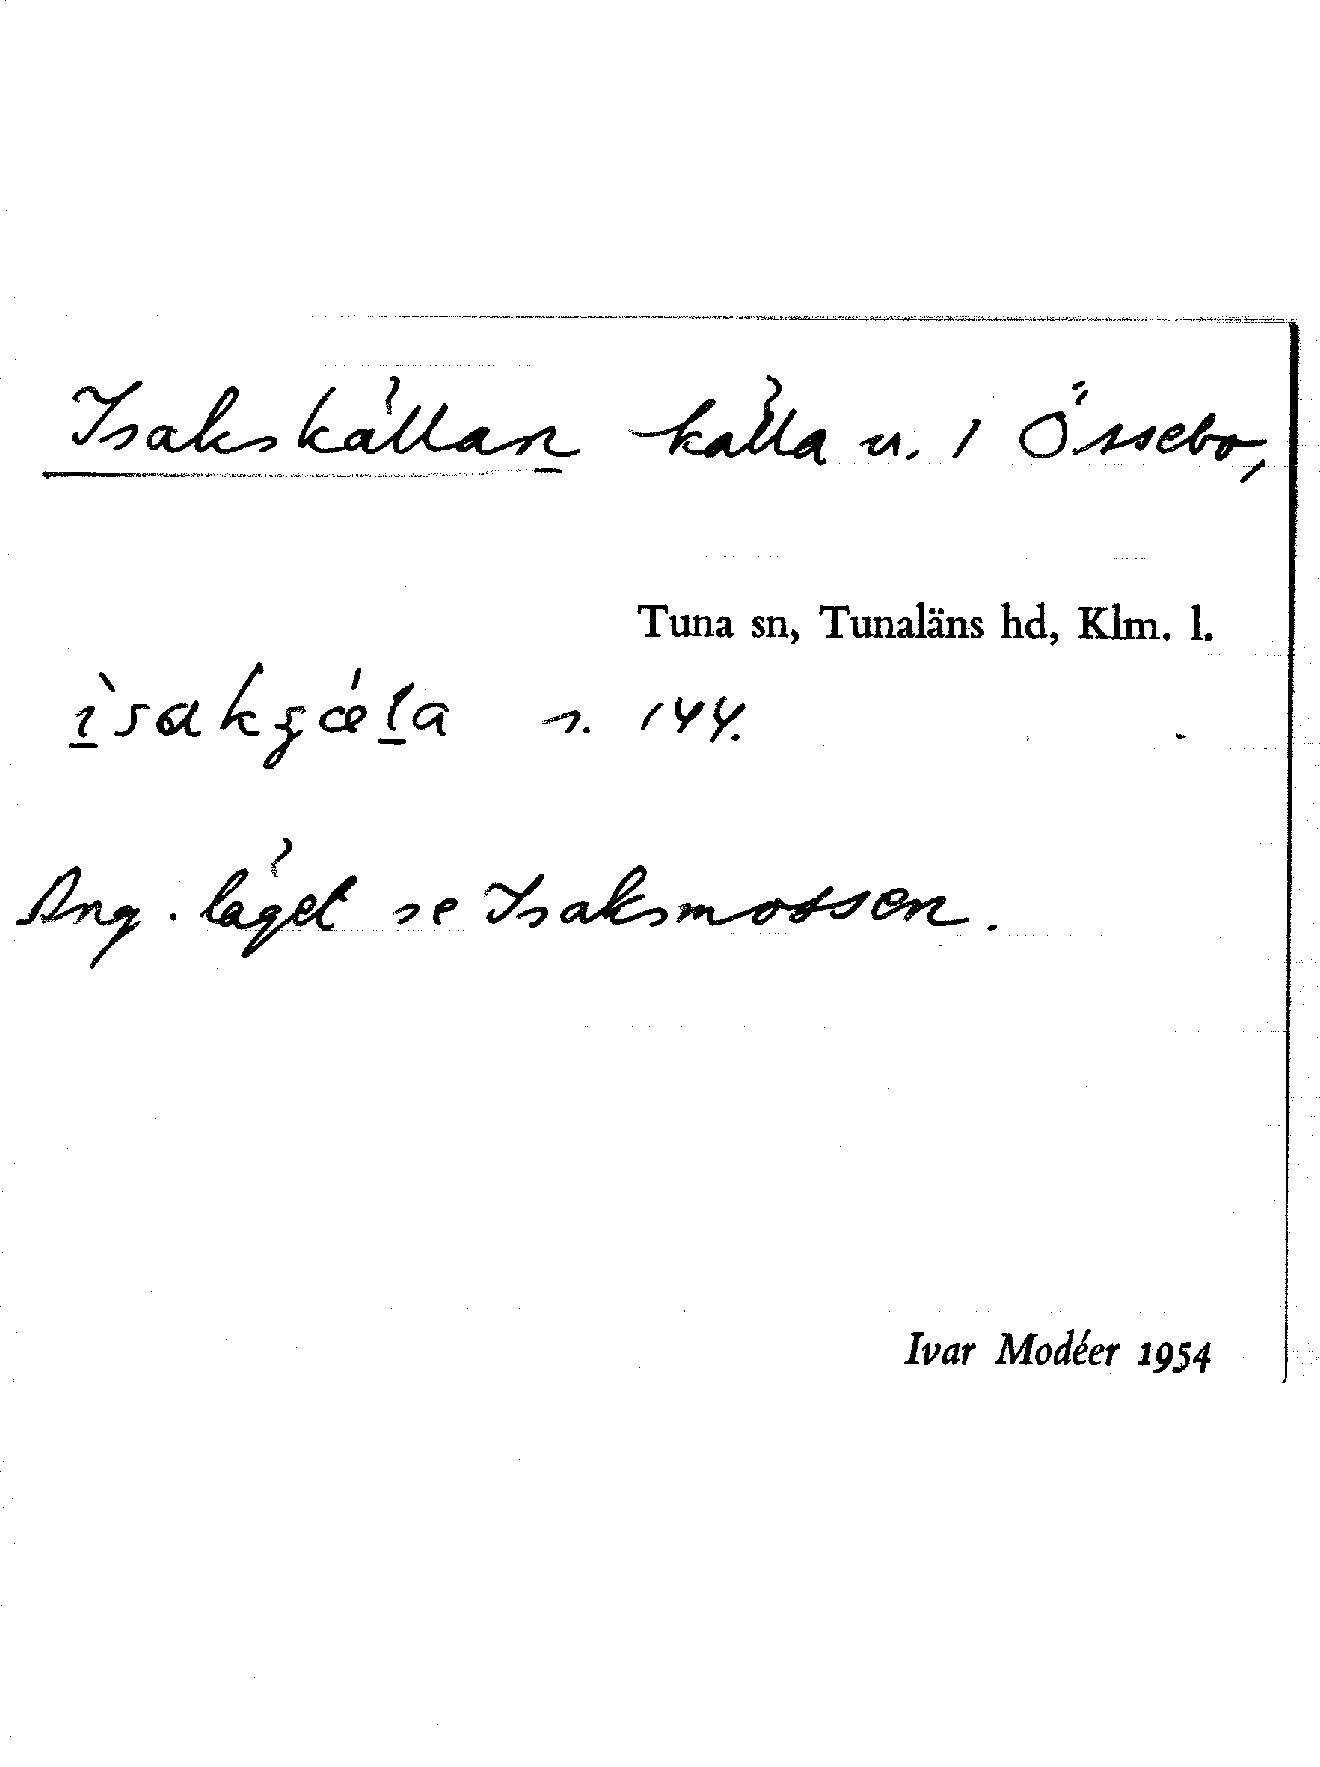 Isakskällan källa u. 1 Össebo,
Tuna sn, Tunaläns hd, Klm. l.
s. 144.
Ang. läget se Isaksmossen.
Ivar Modéer 1954